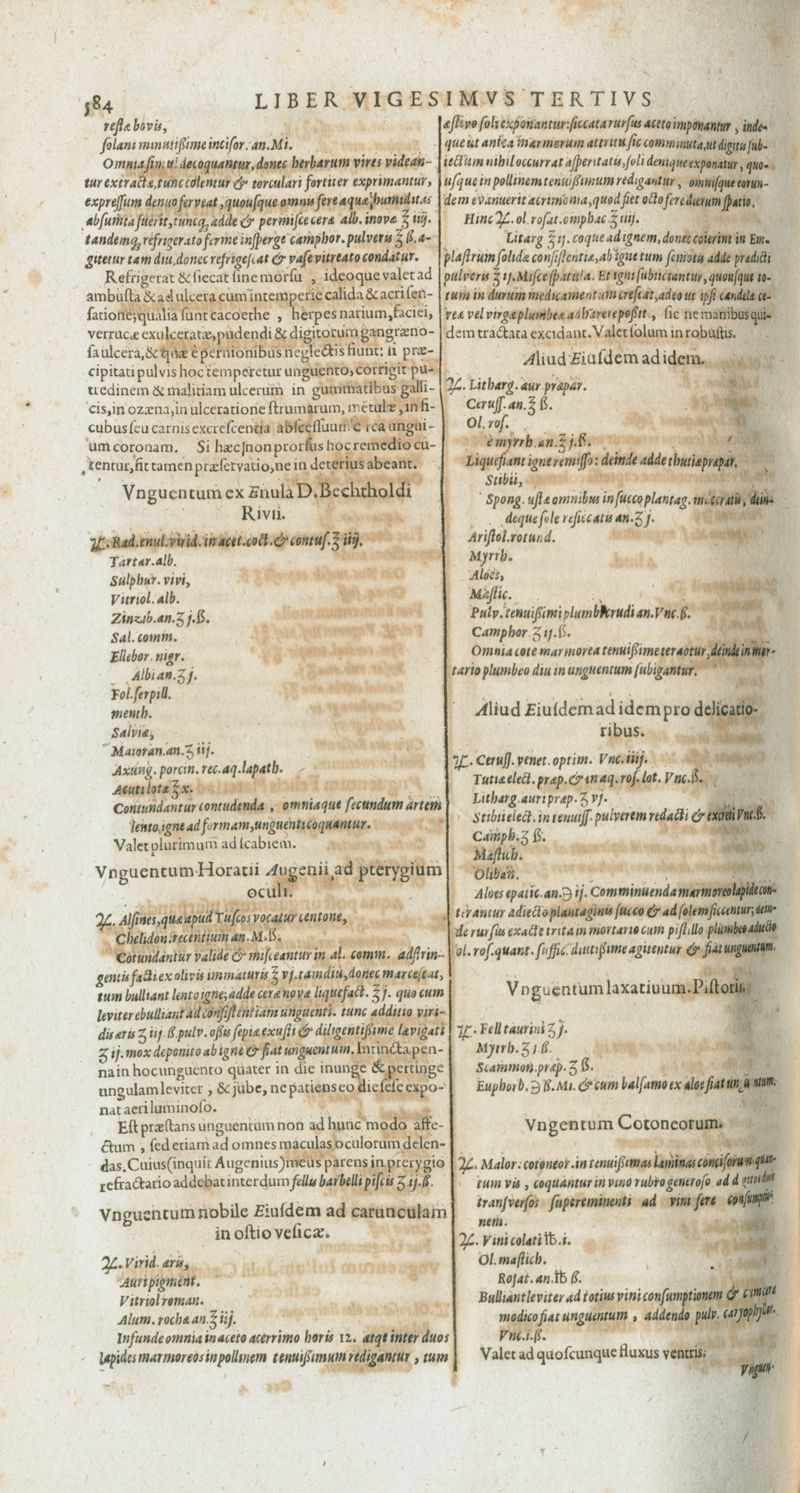 584
LIBER VIGESIMVS TERTIVS
restæ bovis,
solani minutißime incisor. an. Mi.
Omnia simul decoquantur, donec herbarum vires videan-
tur extractæ, tunc colentur & torculari fortiter exprimantur,
expressum denuo ferveat, quousque omnis fere aquæ humiditas
absumta fuerit, tuncq₃ adde & permisce ceræ alb. inovæ ℥ iiij.
tandemq₃ refrigerato ferme insperge camphor. pulveris ℥ ß. a-
gitetur tam diu, donec refrigescat & vase vitreato condatur.
Refrigerat & siecat sine morsu , ideoque valet ad
ambusta & ad ulcera cum intemperie calida & acri sen-
satione; qualia sunt cacoethe , herpes narium, faciei,
verrucæ exulceratæ, pudendi & digitorum gangræno-
sa ulcera, & quæ è pernionibus neglectis fiunt: si præ-
cipitati pulvis hoc temperetur unguento, corrigit pu-
tredinem & malitiam ulcerum in gummatibus galli-
cis, in ozæna, in ulceratione strumarum, metulæ, in fi-
cubus seu carnis excrescentia abscessuum c rca ungui-
um coronam. Si hæc non prorsus hoc remedio cu-
rentur, fit tamen præservatio, ne in deterius abeant.
Vnguentum ex Enula D. Bechtholdi
Rivii.
℞. Rad. enul. virid. in acet. coct. & contus. ℥ iiij.
Tartar. alb.
Sulphur. vivi,
Vitriol. alb.
Zinzib. an. ʒ j. ß.
Sal. comm.
Ellebor. nigr.
Albi an. ʒ j.
Fol. serpill.
menth.
Salviæ,
Maioran. an. ʒ iij.
Axung. porcin. rec. aq. lapath.
Acuti lotæ ℥ x.
Contundantur contudenda , omniaque secundum artem
lento igne ad formam, unguenti coquantur.
Valet plurimum ad scabiem.
Vnguentum Horatii Augenii ad pterygium
oculi.
℞. Alsines, quæ apud Tuscos vocatur centone,
Chelidon. recentium an. M. ß.
Cotundantur valide & misceantur in al. comm. adstrin-
gentis facti ex olivis immaturis ℥ vj. tamdiu, donec marcescat,
tum bulliant lento igne; adde ceræ novæ liquefact. ℥ j. quo cum
leviter ebulliant ad consistentiam unguenti. tunc additio viri-
dis æris ʒ iij. ß. pulv. ossis sepiæ exusti & diligentißime lævigati
ʒ ij. mox deponito ab igne & fiat unguentum. Intincta pen-
na in hoc unguento quater in die inunge & pertinge
ungulam leviter , & jube, ne patiens eo die sese expo-
nat aeri luminoso.
Est præstans unguentum non ad hunc modo affe-
ctum , sed etiam ad omnes maculas oculorum delen-
das. Cuius (inquit Augenius) meus parens in pterygio
refractario addebat interdum fellis barbelli piscis ʒ ij. ß.
Vnguentum nobile Eiusdem ad carunculam
in ostio vesicæ.
℞. Virid. æris,
Auripigment.
Vitriol roman.
Alum. rochæ an. ℥ iij.
Infunde omnia in aceto acerrimo horis 12. atqꝫ inter duos
lapides marmoreos in pollinem tenuißimum redigantur , tum
æstivo soli exponantur: siccata rursus aceto imponantur , inde-
que ut antea marmorum attritu sic comminuta, ut digitis sub-
tectum nihil occurrat asperitatis, soli denique exponatur , quo-
usque in pollinem tenuißimum redigantur , omnisque eorun-
dem evanuerit acrimonia, quod fiet octo fere dierum spatio.
Hinc ℞. ol. rosat. omphac. ℥ iiij.
Litarg ℥ ij. coque ad ignem, donec coierint in Em-
plastrum solidæ consistentiæ, ab igne tum semotis adde prædicti
pulveris ℥ ij. Misce spatula. Et igni subiiciantur, quousque to-
tum in durum medicamentum crescat, adeo ut ipsi candelæ ce-
reæ vel virgæ plumbeæ adhærere possit , sic ne manibus qui-
dem tractata excidant. Valet solum in robustis.
Aliud Eiusdem ad idem.
℞. Litharg. aur præpar.
Ceruss. an. ℥ ß.
Ol. ros.
è myrrh. an. ℥ j. ß.
Liquefiant igne remisso: deinde adde thutiæ præpar.
Stibii,
Spong. ustæ omnibus in succo plantag. maceratis, dein-
deque sole resiccatis an. ʒ j.
Aristol. rotund.
Myrrh.
Aloes,
Mastic.
Pulv. tenuißimi plumbi crudi an. Vnc. ß.
Camphor ʒ ij. ß.
Omnia cote marmorea tenuißime terantur, deinde in mor-
tario plumbeo diu in unguentum subigantur.
Aliud Eiusdem ad idem pro delicatio-
ribus.
℞. Ceruss. venet. optim. Vnc. iiij.
Tutiæ elect. præp. & in aq. ros. lot. Vnc. ß.
Litharg. auri præp. ʒ vj.
Stibii elect. in tenuiss. pulverem redacti & exciti Vnc. ß.
Camph. ʒ ß.
Mastich.
Oliban.
Aloes epatic. an. ℈ ij. Comminuenda marmoreo lapide con-
terantur adiecto plantaginis succo & ad solem siccentur; dein-
de rursus exacte trita in mortario cum pistillo plumbeo adiecto
ol. ros. quant. suffic. diutißime agitentur & fiat unguentum.
Vnguentum laxativum. Pistorii.
℞. Fell taurini ℥ j.
Myrrh. ʒ j. ß.
Scammon. præp. ʒ ß.
Euphorb. ℈ ß. Mi. & cum balsamo ex aloe fiat unguentum.
Vngentum Cotoneorum.
℞. Malor. cotoneor. in tenuißimas laminas concisorum quan-
tum vis , coquantur in vino rubro generoso ad d
transversos supereminenti ad vini fere consumptio-
nem.
℞. Vini colati ℔. i.
Ol. mastich.
Rosat. an. ℔ ß.
Bulliant leviter ad totius vini consumptionem & cum cera
modico fiat unguentum , addendo pulv. caryophyllor.
Vnc. i. ß.
Valet ad quoscunque fluxus ventris.
Vnguen-